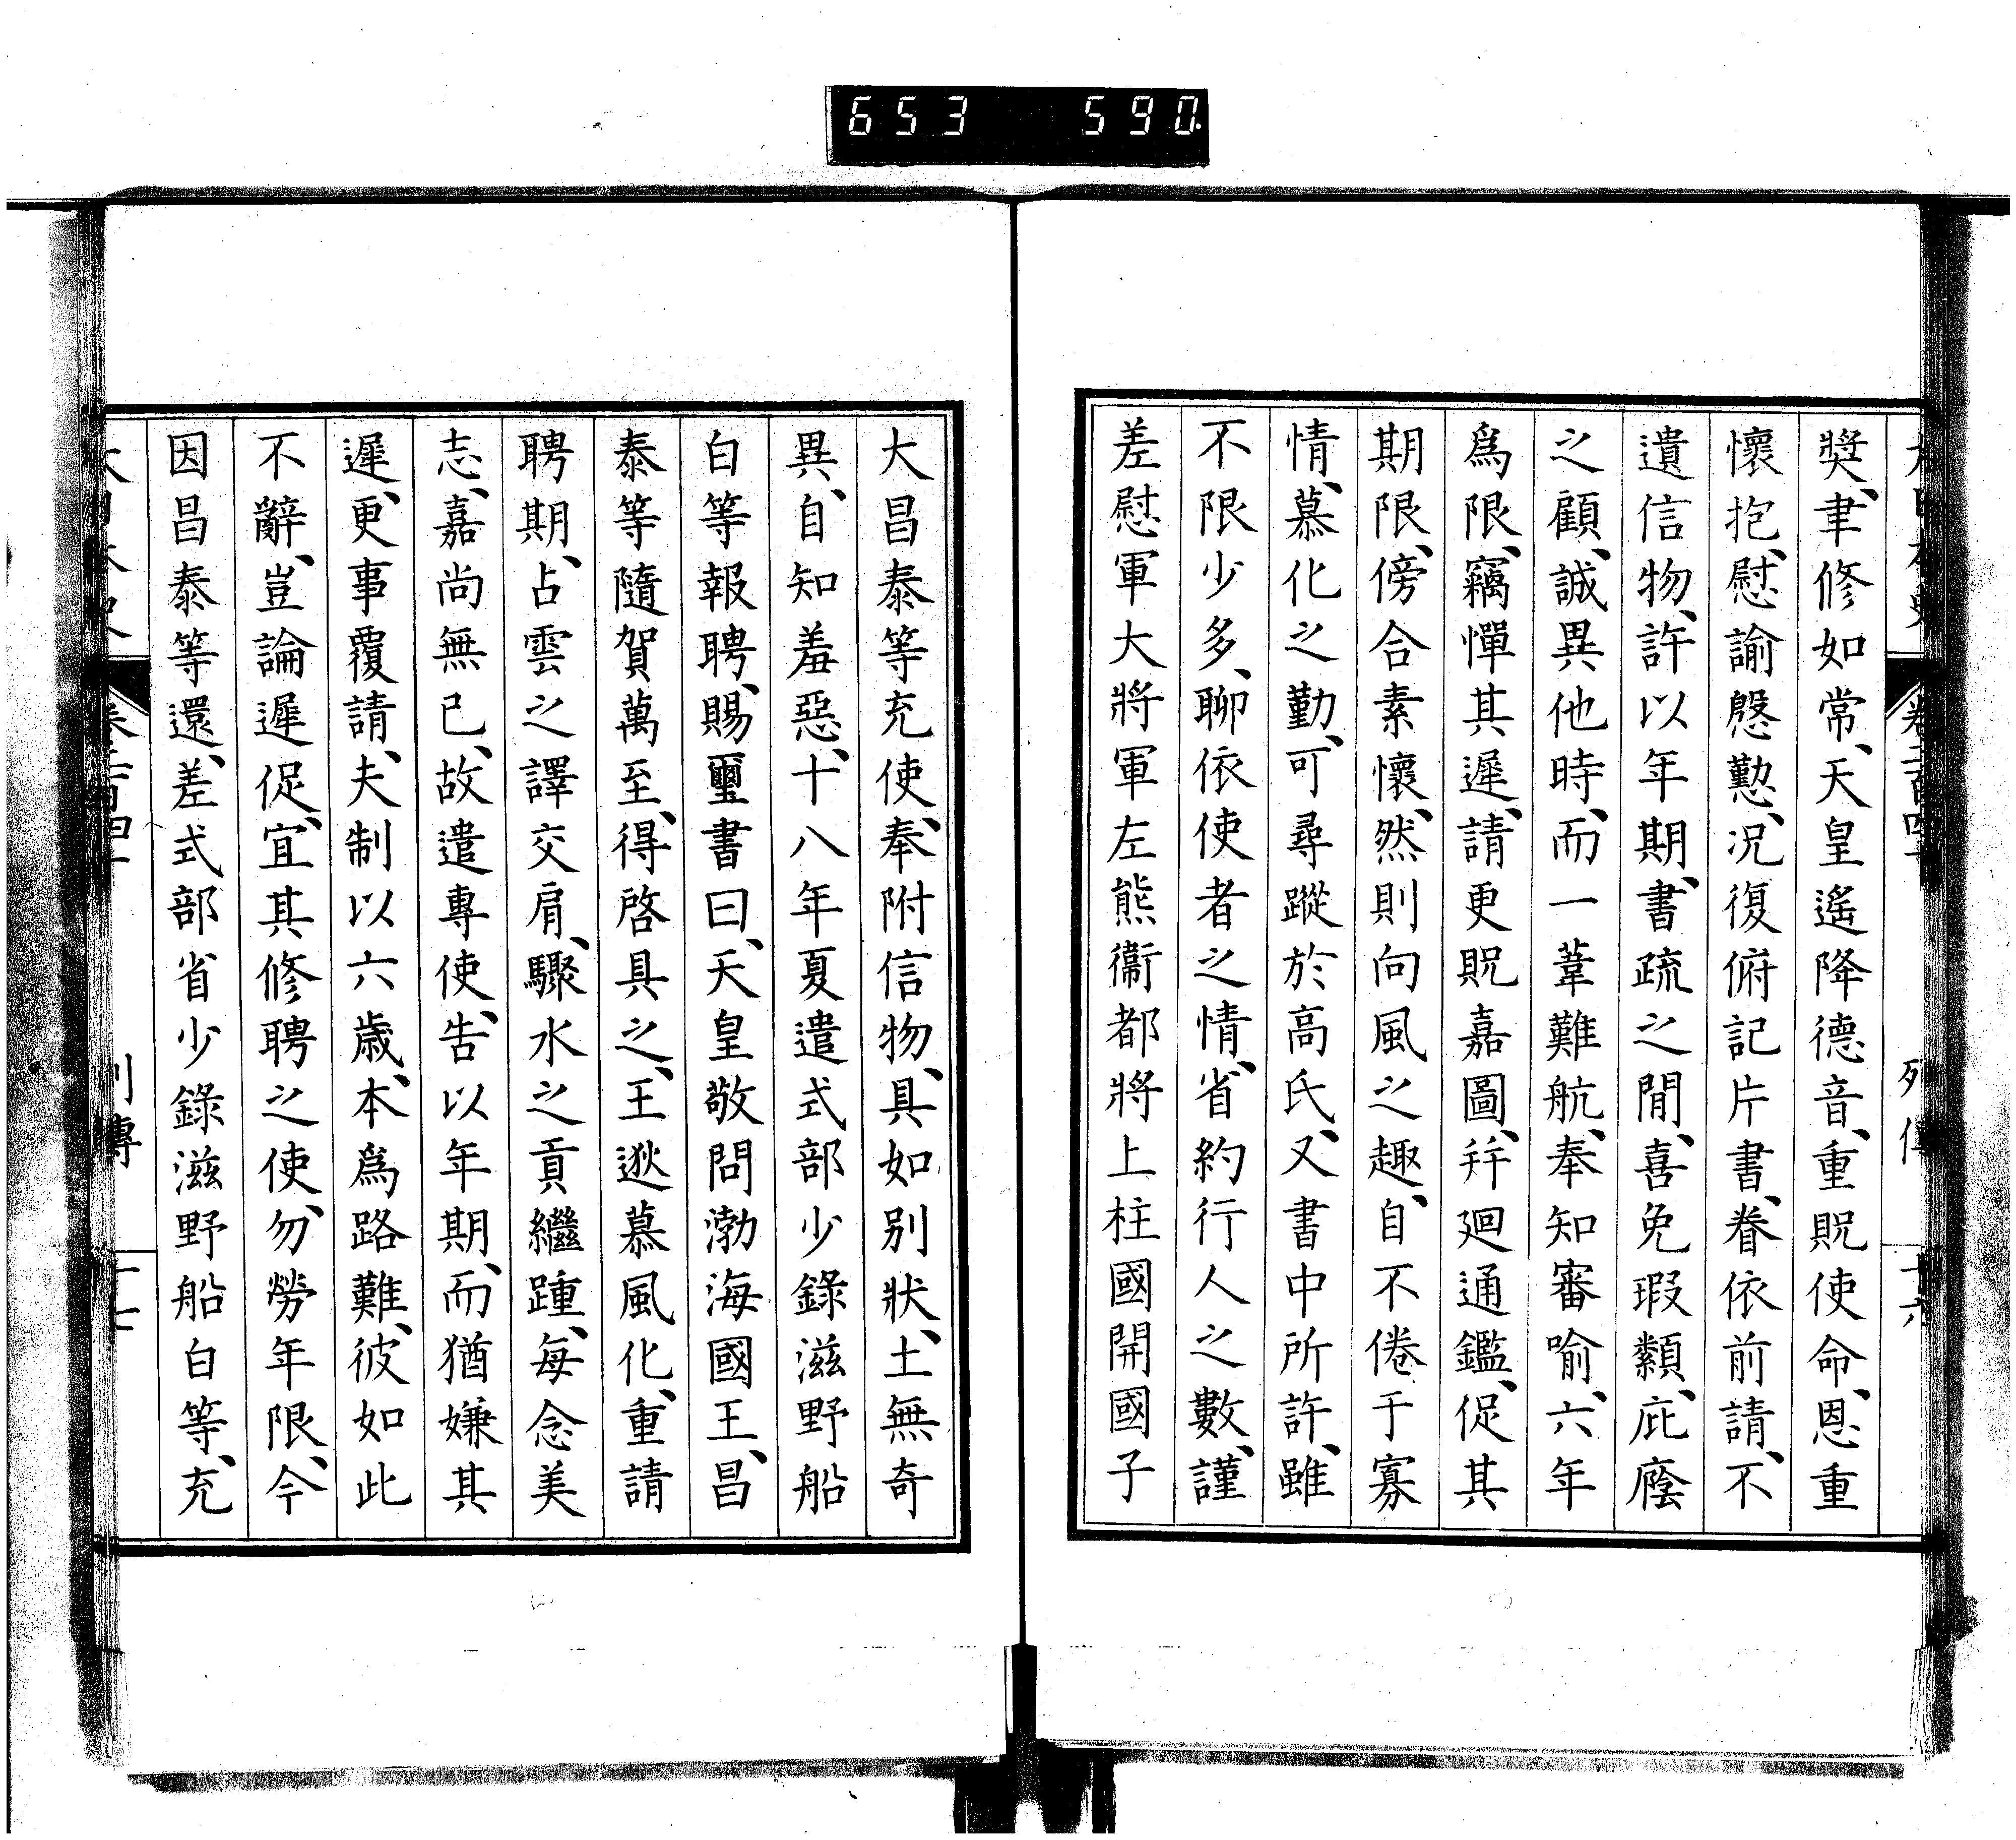 653 590
大日本史 卷二百四十 列傳 十六
奬、聿修如常、天皇遙降德音、重貺使命、恩重
懷抱、慰諭慇懃、况復俯記片書、眷依前請、不
遺信物、許以年期、書疏之間、喜免瑕纇、庇廕
之顧、誠異他時、而一葦難航、奉知審喻、六年
爲限、竊憚其遲、請更貺嘉圖、幷廻通鑑、促其
期限、傍合素懷、然則向風之趣、自不倦于寡
情、慕化之勤、可尋蹤於高氏、又書中所許、雖
不限少多、聊依使者之情、省約行人之數、謹
差慰軍大將軍左熊衞都將上柱國開國子
大昌泰等充使、奉附信物、具如別狀、土無奇
異、自知羞惡、十八年夏遣式部少錄滋野船
白等報聘、賜璽書曰、天皇敬問渤海國王、昌
泰等隨賀萬至、得啓具之、王逖慕風化、重請
聘期、占雲之譯交肩、驟水之貢繼踵、每念美
志、嘉尚無已、故遣專使、告以年期、而猶嫌其
遲、更事覆請、夫制以六歲、本爲路難、彼如此
不辭、豈論遲促、宜其修聘之使、勿勞年限、今
因昌泰等還、差式部省少錄滋野船白等、充
大日本史 卷二百四十 列傳 十七